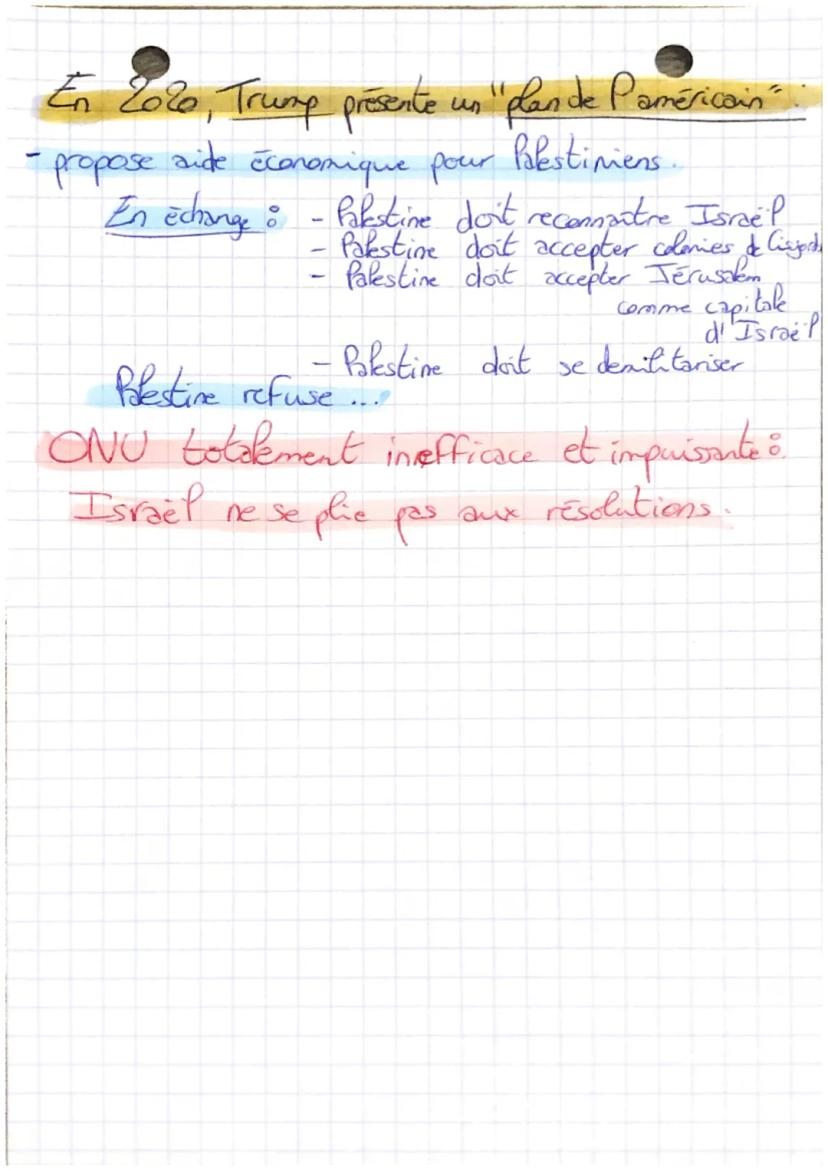 En 2020, Trump présente un "plan de P américain" :
- propose aide économique pour Palestiniens.
En échange : - Palestine doit reconnaître Israël
- Palestine doit accepter colonies de
- Palestine doit accepter Jérusalem
comme capitale
d'Israël
- Palestine doit se demilitariser
Palestine refuse ...
ONU totalement inefficace et impuissante :
Israël ne se plie pas aux résolutions.